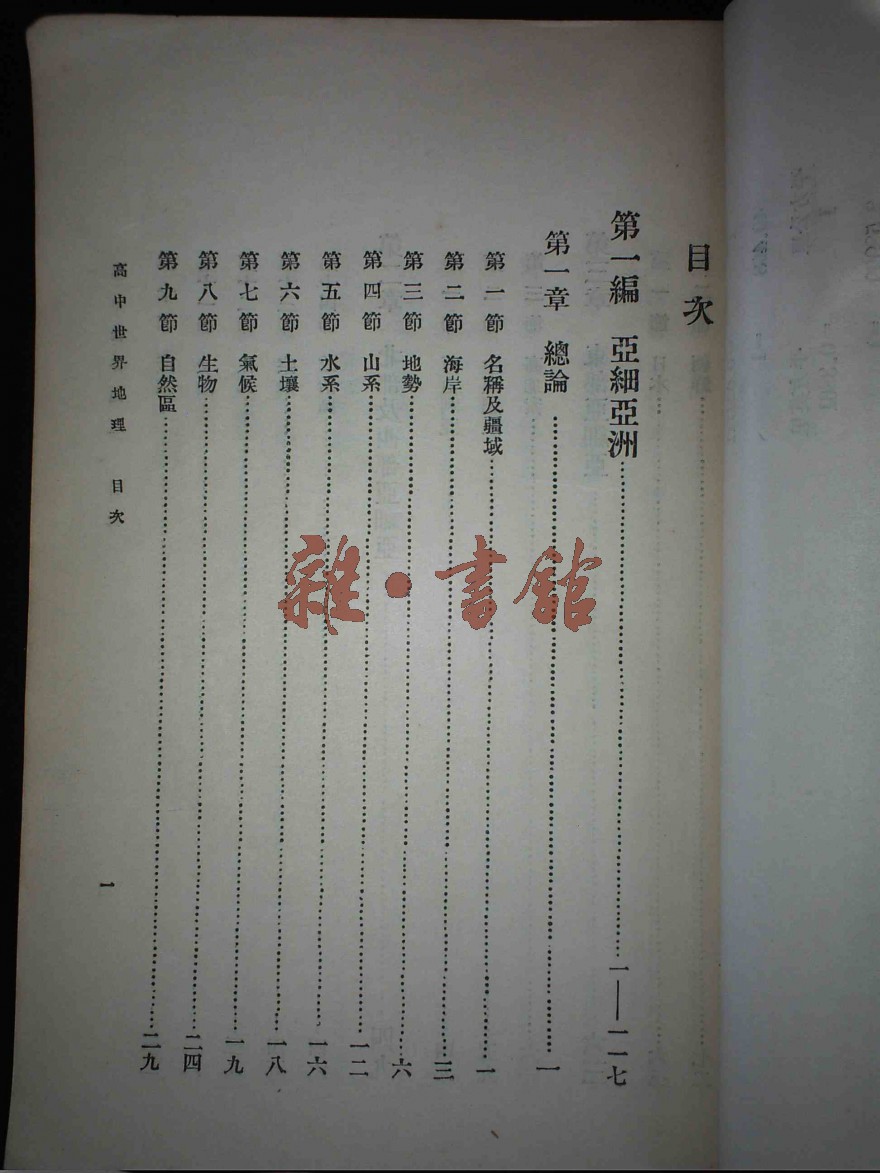 目次
第一編 亞細亞洲……一——一一七
第一章 總論……一
第一節 名稱及疆域……一
第二節 海岸……三
第三節 地勢……六
第四節 山系……一二
第五節 水系……一六
第六節 土壤……一八
第七節 氣候……一九
第八節 生物……二四
第九節 自然區……二九
高中世界地理 目次
一
雜·書館